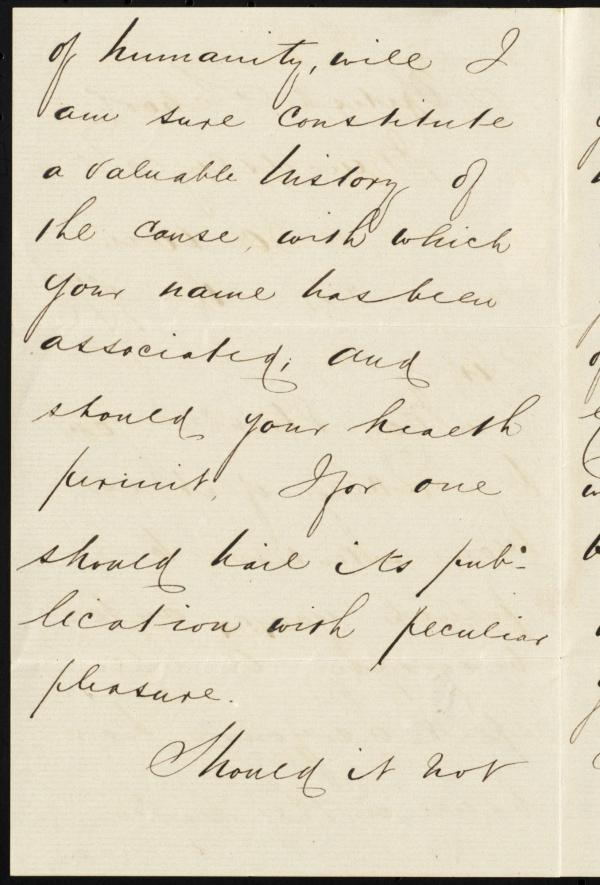 of humanity, will I
am sure constitute
a valuable history of
the cause, with which
your name has been
associated; and
should your health
permit, I for one
should hail its pub-
lication with peculiar
pleasure.
Should it not